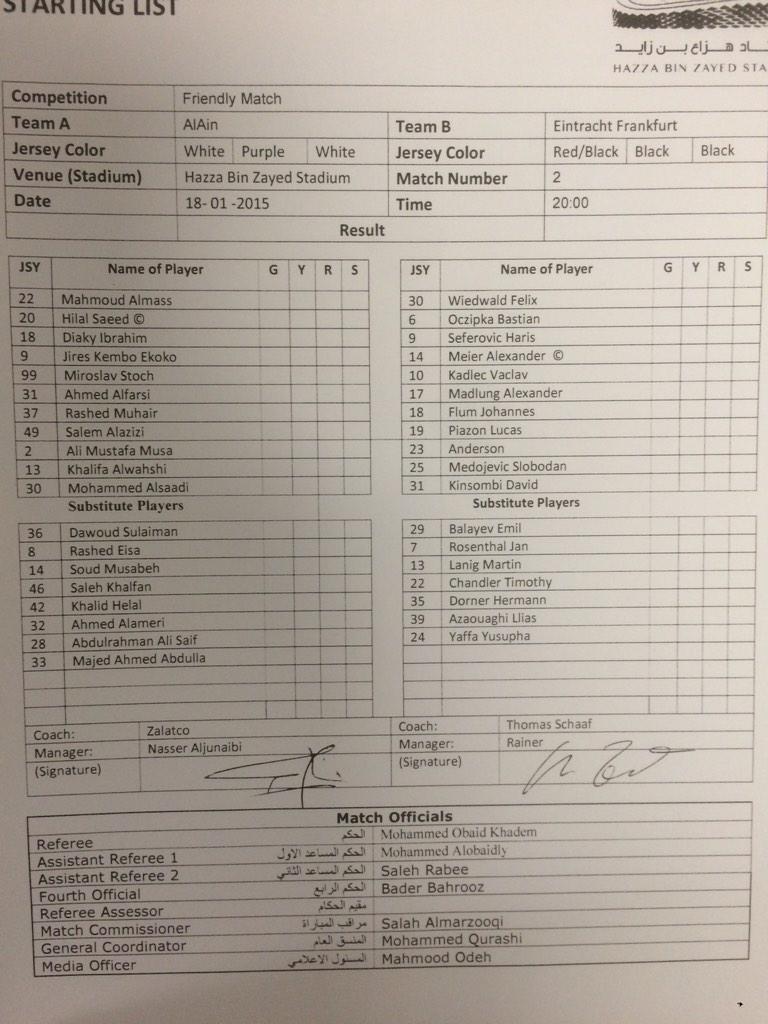 STARTING LIST
HAZZA BIN ZAYED STA
Competition Friendly Match
Team A AlAin Team B Eintracht Frankfurt
Jersey Color White Purple White Jersey Color Red/Black Black Black
Venue (Stadium) Hazza Bin Zayed Stadium Match Number 2
Date 18- 01 -2015 Time 20:00
Result
JSY Name of Player G Y R S JSY Name of Player G Y R S
22 Mahmoud Almass 30 Wiedwald Felix
20 Hilal Saeed © 6 Oczipka Bastian
18 Diaky Ibrahim 9 Seferovic Haris
9 Jires Kembo Ekoko 14 Meier Alexander ©
99 Miroslav Stoch 10 Kadlec Vaclav
31 Ahmed Alfarsi 17 Madlung Alexander
37 Rashed Muhair 18 Flum Johannes
49 Salem Alazizi 19 Piazon Lucas
2 Ali Mustafa Musa 23 Anderson
13 Khalifa Alwahshi 25 Medojevic Slobodan
30 Mohammed Alsaadi 31 Kinsombi David
Substitute Players Substitute Players
36 Dawoud Sulaiman 29 Balayev Emil
8 Rashed Eisa 7 Rosenthal Jan
14 Soud Musabeh 13 Lanig Martin
46 Saleh Khalfan 22 Chandler Timothy
42 Khalid Helal 35 Dorner Hermann
32 Ahmed Alameri 39 Azaouaghi Llias
28 Abdulrahman Ali Saif 24 Yaffa Yusupha
33 Majed Ahmed Abdulla
Coach: Zalatco Coach: Thomas Schaaf
Manager: Nasser Aljunaibi Manager: Rainer
(Signature) (Signature)
Match Officials
Referee الحكم Mohammed Obaid Khadem
Assistant Referee 1 الحكم المساعد الاول Mohammed Alobaidly
Assistant Referee 2 الحكم المساعد الثاني Saleh Rabee
Fourth Official الحكم الرابع Bader Bahrooz
Referee Assessor مقيم الحكام
Match Commissioner مراقب المباراة Salah Almarzooqi
General Coordinator المنسق العام Mohammed Qurashi
Media Officer المسئول الاعلامي Mahmood Odeh